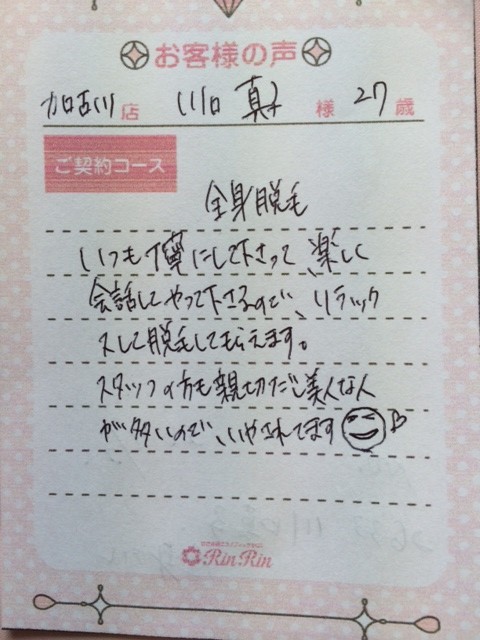 お客様の声
加古川店 川口 真子 様 27歳
ご契約コース
全身脱毛
いつも丁寧にして下さって、楽しく
会話してやって下さるので、リラック
スして脱毛してもらえます。
スタッフの方も親切だし美人な人
が多いので、いやされてます
RinRin